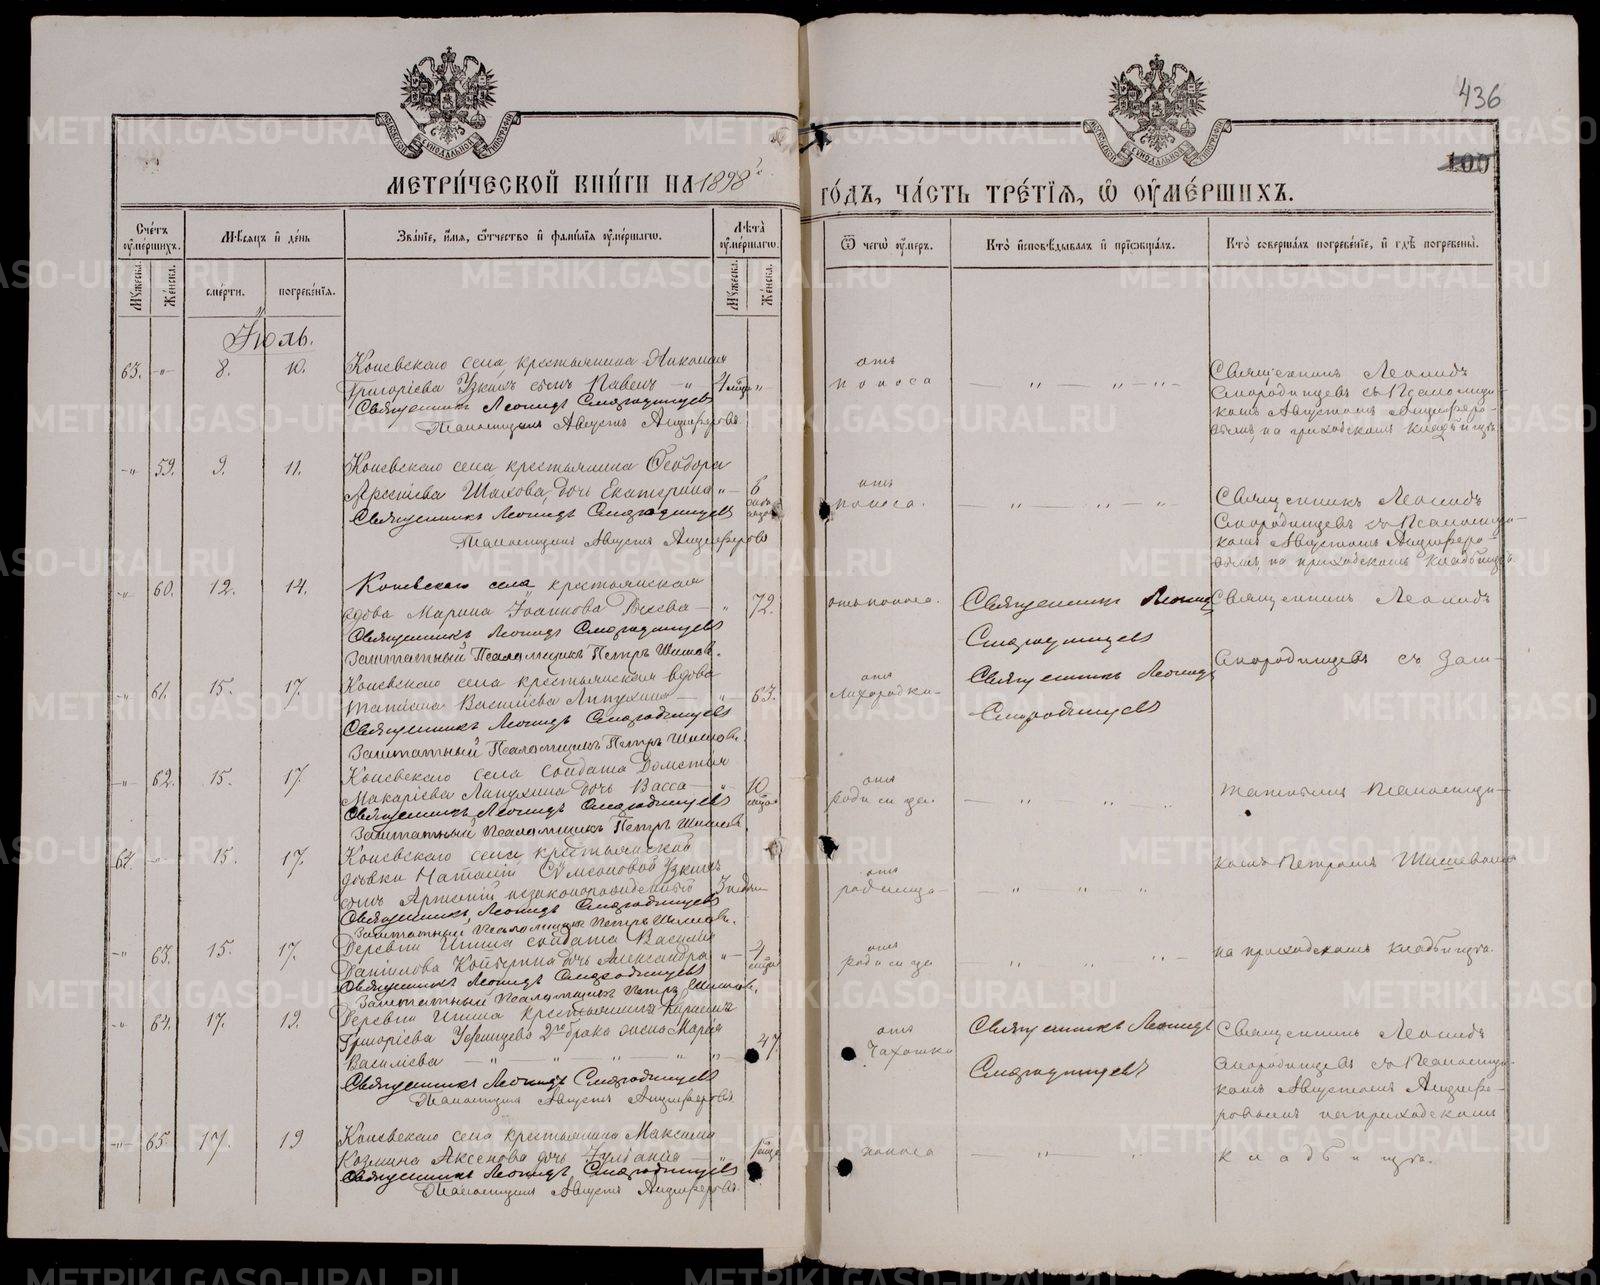 436
100
МЕТРИ́ЧЕСКОЙ КНИ́ГИ НА 1898 й
ГО́ДЪ, ЧА́СТЬ ТРЕ́ТЇѦ, Ѽ ОУ҆МЕ́РШИХЪ.
Сче́тъ оу҆ме́ршихъ.
Мꙋ́жеска.
Же́нска.
Мѣ́сѧцъ и҆ де́нь
сме́рти.
погребе́нїѧ.
Зва́нїе, и҆́мѧ, ѻ҆́тчество и҆ фами́лїѧ оу҆ме́ршагѡ.
Лѣ́та оу҆ме́ршагѡ.
Мꙋ́жеска.
Же́нска.
Ѿ чегѡ̀ оу҆́меръ.
Кто̀ и҆сповѣ́дывалъ и҆ прїѻбща́лъ.
Кто̀ соверша́лъ погребе́нїе, и҆ гдѣ̀ погребены̀.
Іюль.
63. -"- 8. 10. Коневскаго села крестьянина Николая
Григоріева Узкихъ сынъ Павелъ -"- 4 мѣс. "
Священникъ Леонидъ Смородинцевъ
Псаломщикъ Августъ Анциферовъ
отъ
поноса
Священникъ Леонидъ
Смородинцевъ съ Псаломщи-
комъ Августомъ Анциферо-
вымъ, на приходскомъ кладбищѣ.
-"- 59. 9. 11. Коневскаго села крестьянина Ѳеодора
Арсеніева Шахова, дочь Екатерина "- 6
Священникъ Леонидъ Смородинцевъ
Псаломщикъ Августъ Анциферовъ
отъ
поноса.
Священникъ Леонидъ
Смородинцевъ съ Псаломщи-
комъ Августомъ Анциферо-
вымъ, на приходскомъ кладбищѣ.
-"- 60. 12. 14. Коневскаго села крестьянская
вдова Марина Іоаннова - " 72.
Священникъ Леонидъ Смородинцевъ
Заштатный Псаломщикъ Петръ Шишовъ.
отъ поноса.
Священникъ Леонидъ
Смородинцевъ
Священникъ Леонидъ
-"- 61. 15. 17. Коневскаго села крестьянская вдова
Татіана Василіева Лапухина - "- 63.
Священникъ Леонидъ Смородинцевъ
Заштатный Псаломщикъ Петръ Шишовъ.
отъ
лихорадки-
Священникъ Леонидъ
Смородинцевъ
Смородинцевъ съ Заш-
-"- 62. 15. 17. Коневскаго села солдата Дометія
Макаріева Лапухина дочь Васса - " 10 мѣсяц.
Священникъ Леонидъ Смородинцевъ
Заштатный Псаломщикъ Петръ Шишовъ
отъ
родимца.
татнымъ Псаломщи-
64. -"- 15. 17. Коневскаго села крестьянской
дѣвки Наталіи Сѵмеоновой Узкихъ
сынъ Арсеній незаконорожденный 3 недѣли
Священникъ Леонидъ Смородинцевъ
Заштатный Псаломщикъ Петръ Шишовъ.
отъ
родимца
комъ Петромъ Шишовымъ
-"- 63. 15. 17. Деревни Ипата солдата Василія
Даніилова дочь Александра "- 4 мѣсяц.
Священникъ Леонидъ Смородинцевъ
Заштатный Псаломщикъ Петръ Шишовъ.
отъ
родимца
на приходскомъ кладбищѣ.
-"- 64. 17. 19. Деревни Ипата крестьянина
Григоріева 2го брака жена Марія
Василіева -"-"-"-"- 47
Священникъ Леонидъ Смородинцевъ
Псаломщикъ Августъ Анциферовъ
отъ
Чахотки
Священникъ Леонидъ
Смородинцевъ
Священникъ Леонидъ
Смородинцевъ съ Псаломщи-
комъ Августомъ Анцифе-
ровымъ на приходскомъ
-"- 65. 17. 19 Коневскаго села крестьянина Максима
Козмина Аксенова дочь Іуліанія -
Священникъ Леонидъ Смородинцевъ
Псаломщикъ Августъ Анциферовъ.
поноса
кладбищѣ.
METRIKI.GASO-URAL.RU